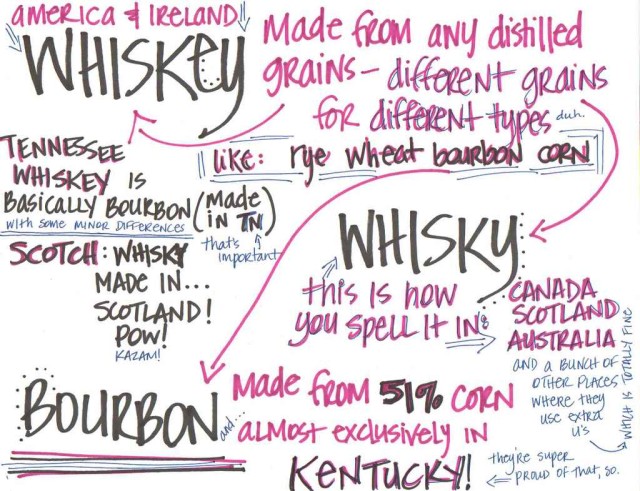 AMERICA & IRELAND
WHISKEY
Made from any distilled
grains - different grains
for different types duh.
like: rye wheat bourbon corn
TENNESSEE
WHISKEY IS
BASICALLY BOURBON
WITH SOME MINOR DIFFERENCES
(Made
in TN)
that's
important
SCOTCH: WHISKY
MADE IN...
SCOTLAND!
POW!
KAZAM!
WHISKY
this is how
you spell it in:
CANADA
SCOTLAND
AUSTRALIA
AND A BUNCH OF
OTHER PLACES
WHERE THEY
USE EXTRA
U'S
WHICH IS TOTALLY FINE
BOURBON
and...
Made from 51% CORN
almost exclusively in
KENTUCKY!
they're super
proud of that, so.